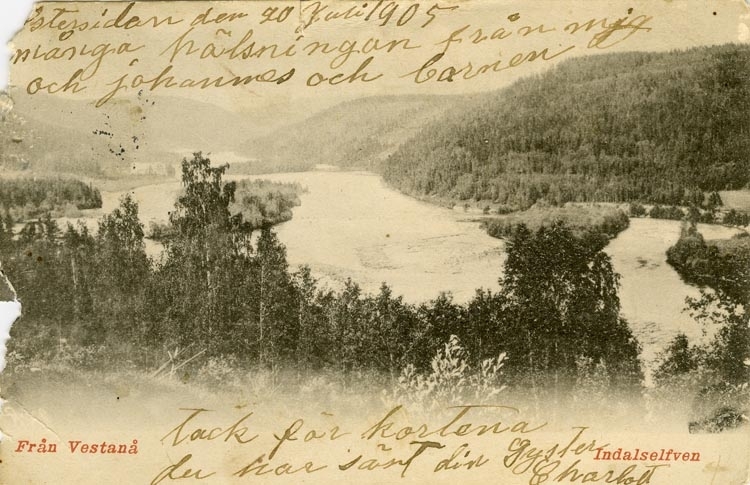 Östersidan den 20 Juli 1905
många hälsningan från mig
och johannes och barnen
tack för kortena
Från Vestanå
Indalselfven
du har sänt din Syster
Charlott